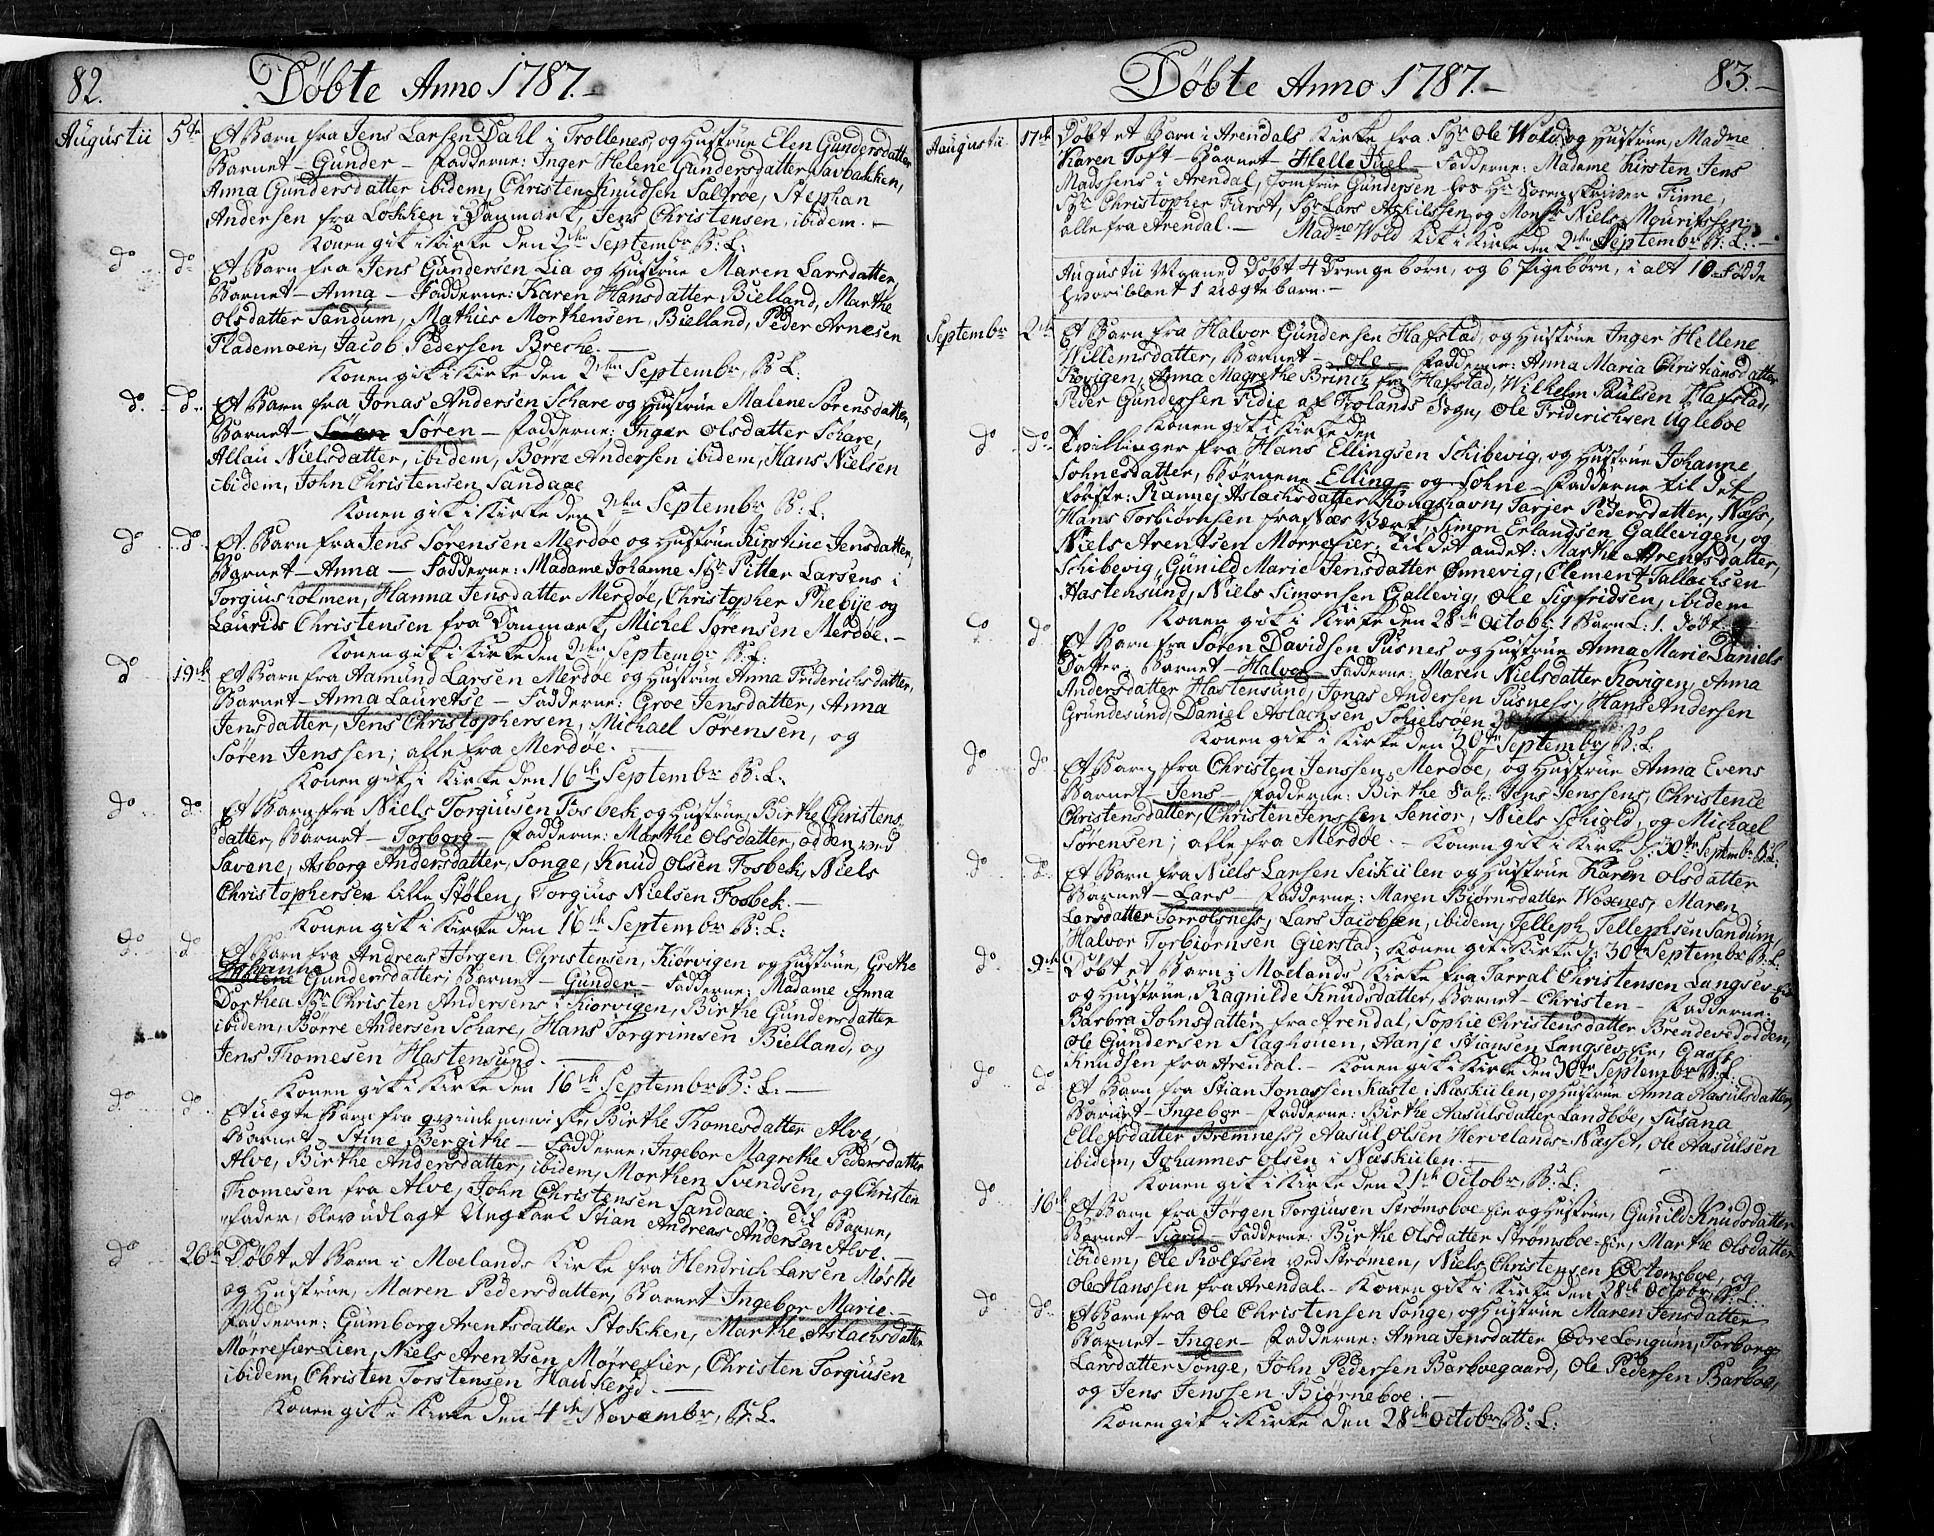 82.
Døbte Anno 1787.
Augustii 5te Et Barn fra Jens Larsen Dahl i Trollenes, og Hustrüe Elen Gündersdatter
Barnet - Günder - Fadderne: Inger Helene Gündersdatter Savbakken,
Anna Gündersdatter ibidem, Christen Knüdsen Saltrøe, Stephan
Andersen fra Løkken i Danmark, Jens Christensen, ibidem. -
Konen gik i Kirke den 2den Septembr B: L:
do do Et Barn fra Jens Gündersen Lia og Hustrüe Maren Larsdatter,
Barnet - Anna - Fadderne: Karen Hansdatter Bielland, Marthe
Olsdatter Sandum, Mathies Morthensen, Bielland, Peder Arnesen
Flademoen, Jacob Pedersen Breche. -
Konen gik i Kirke den 2den Septembr, B: L:
do. do. Et Barn fra Jonas Andersen Schare og Hustrüe Malene Sørensdatter,
Barnet - Søren - Fadderne: Inger Olsdatter Schare,
Allau Nielsdatter, ibidem, Børre Andersen ibidem, Hans Nielsen
ibidem, John Christensen Sandaae
Konen gik i Kirke den 2den Septembr B: L:
do do. Et Barn fra Jens Sørensen Merdøe og Hustrüe Kirstine Jensdatter,
Barnet - Anna - Fadderne: Madame Johanne Sr Pitter Larsens i
Torgiusholmen, Hanna Jensdatter Merdøe, Christopher Phebÿe og
Laurids Christensen fra Danmark, Michel Sørensen Merdøe. -
Konen gik i Kirke den 2den Septembr B: L:
do 19de Et Barn fra Aamünd Larsen Merdøe og Hustrüe Anna Friderichsdatter,
Barnet - Anna Lauretse - Fadderne: Groe Jensdatter, Anna
Jensdatter, Jens Christophersen, Michael Sørensen, og
Søren Jenssen; alle fra Merdøe. -
Konen gik i Kirke den 16de Septembr B: L:
do do Et Barn fra Niels Torgiusen Fosbek, og Hustrüe, Birthe Christens
datter, Barnet - Torborg - Fadderne: Marthe Olsdatter, odden ved
Savene, Asborg Andersdatter, Songe, Knud Olsen Fosbek, Niels
Christophersen Lille Stølen, Torgius Nielsen Fosbek. -
Konen gik i Kirke den 16de Septembr B: L:
do. do Et Barn fra Andreas Jørgen Christensen, Kiørvigen og Hustrüe, Grethe
Johanne
Gundersdatter, Barnet - Günder - Fadderne: Madame Anna
Dorthea Sr Christen Andersens i Kiørvigen, Birthe Gündersdatter
ibidem, Børre Andersen Schare, Hans Torgrimsen Bielland, og
Jens Thomesen Hastensund. -
Konen gik i Kirke den 16de Septembr B: L: -
do do Et uægte Barn fra qvindemenniske, Birthe Thomesdatter Alve,
Barnet Stine Bergithe - Fadderne, Ingebor Magrethe Pedersdatter
Alve, Birthe Andersdatter, ibidem, Morthen Svendsen, og Christen
Thomesen fra Alve, John Christensen Sandaae; Til Barne,
fader, blev udlagt Ungkarl Stian Andreas Andersen Alve. -
do 26de Døbt et Barn i Moelands Kirke fra Hendrich Larsen Møstee
og Hustrüe, Maren Pedersdatter, Barnet - Ingebor Marie. -
Fadderne: Gümborg Arentsdatter Stokken, Marthe Aslachsdatter
Mørrefier Lien, Niels Arentsen Mørrefier, Christen Torgiusen
ibidem, Christen Torstensen Haukerød. -
Konen gik i Kirke den 4de Novembr, B: L.
Døbte Anno 1787. - 83. -
Augustii. 17de Døbt et Barn i Arendals Kirke fra Sr Ole Wold, og Hustrüe, Madme
Karen Toft - Barnet - Helle Juel - Fadderne: Madame Kirsten Jens
Madssens i Arendal, Jomfrüe Gündersen hos Hr Sorenskriver Finne,
Sr Christopher Fürst, Sr Lars Askilssen og Monsr Niels Mouritssen;
alle fra Arendal. - Madme Wold kik i Kirke den 2den Septembr B: L: -
Augustii Maaned Døbt 4 Drengebørn, og 6 Pigebørn, i alt 10 Fødde
hvoriblant 1 uægte barn. -
Septembr 2de Et Barn fra Halvor Gündersen Hafstad, og Hustrüe Inger Hellene
Willemsdatter, Barnet - Ole - Fadderne: Anna Maria Christiansdatter
Kovigen, Anna Magrethe Brinck fra Hafstad, Wilhelm Paülsen Hafstad,
Peder Gündersen Fidie af Frolands Sogn, Ole Friderichsen Ugleboe
Konen gik i Kirke den
do do Tvillinger fra Hans Ellingsen Schibevig, og Hustrüe Johanne
Sohnesdatter, Børnene Elling og Sohne - Fadderne til det
første: Ranne Aslachsdatter Kongshavn, Tarjer Pedersdatter, Næss,
Hans Torbiørnsen fra Næs Værk, Simon Erlandsen Gallevigen, og
Niels Arentsen Mørrefier; til det andet: Marthe Arentsdatter,
Schibevig, Günild Marie Jensdatter Ønnevig, Clement Tallachsen
Hastensünd, Niels Simonsen Gallevig, Ole Sigfridsen, ibidem
Konen gik i Kirke den 28de Octobr: 1 Barn L: 1. død
do do Et Barn fra Søren Davidsen Pusnes og Hustrüe Anna Marie Daniels
Datter: Barnet - Halvor Fadderne: Maren Nielsdatter Kovigen, Anna
Andersdatter Hastensund, Jonas Andersen Pusness, Hans Andersen
Gründesünd, Daniel Aslachsen, Schielsøen
Konen gik i Kirke den 30te Septembr B: L.
do do Et Barn fra Christen Jenssen, Merdøe, og Hustrüe Anna Evens
Barnet - Jens - Fadderne: Birthe Sal: Jens Jenssens, Christence
Christensdatter, Christen Jenssen Senior, Niels Schiold, og Michael
Sørensen; alle fra Merdøe. - Konen gik i Kirke d: 30te Septembr B: L:
do do Et Barn fra Niels Larsen Seikülen og Hustrüe Karen Olsdatter
Barnet - Lars - Fadderne: Maren Biørnsdatter Woxnes, Maren
Larsdatter Torrolsness, Lars Jacobsen, ibidem, Telleph Tellephsen Sandum,
Halvor Torbiørnsen Gierstad; Konen gik i Kirke d: 30te Septembr B: L.
do. 9de Døbt et Barn i Moelands Kirke fra Tarral Christensen Langses Eie
og Hustrüe, Ragnilde Knüdsdatter, Barnet - Christen - Fadderne:
Barbra Johnsdatter fra Arendal, Sophie Christensdatter Brendevedodden,
Ole Gündersen Flaghouen, Aanje Stiansen Langses eie, Gast
Knüdsen fra Arendal. - Konen gik i Kirke den 30te Septembr B: L.
do do Et Barn fra Stian Jonassen Kaste i Naskülen, og Hustrüe Anna Aasülsdatter,
Barnet - Ingebor - Fadderne: Birthe Aasulsdatter Landbøe, Susana
Ellefsdatter Bremness, Aasul Olsen Hervelands-Næsset, Ole Aasülsen
ibidem, Johannes Olsen i Næskülen. -
Konen gik i Kirke den 21de Octobr, B: L:
do 16de Et Barn fra Jørgen Torgiusen Strømsboe eie og Hustrüe, Günild Knüdsdatter
Barnet - Sigrid Fadderne: Birthe Olsdatter Strømsboe-eie, Marthe Olsdatter
ibidem, Ole Rolfsen ved Strømen, Niels Christensen Østensboe, og
Ole Hanssen fra Arendal. - Konen gik i Kirke den 28de Octobr, B: L:
do do Et Barn fra Ole Christensen Songe, og Hustrüe Maren Jensdatter
Barnet - Inger - Fadderne: Anna Jensdatter Øvre Longum, Torborg
Larsdatter Songe, John Pedersen Barboegaard, Ole Pedersen Barboe,
og Jens Jenssen Biørneboe. -
Konen gik i Kirke den 28de Octobr B: L: